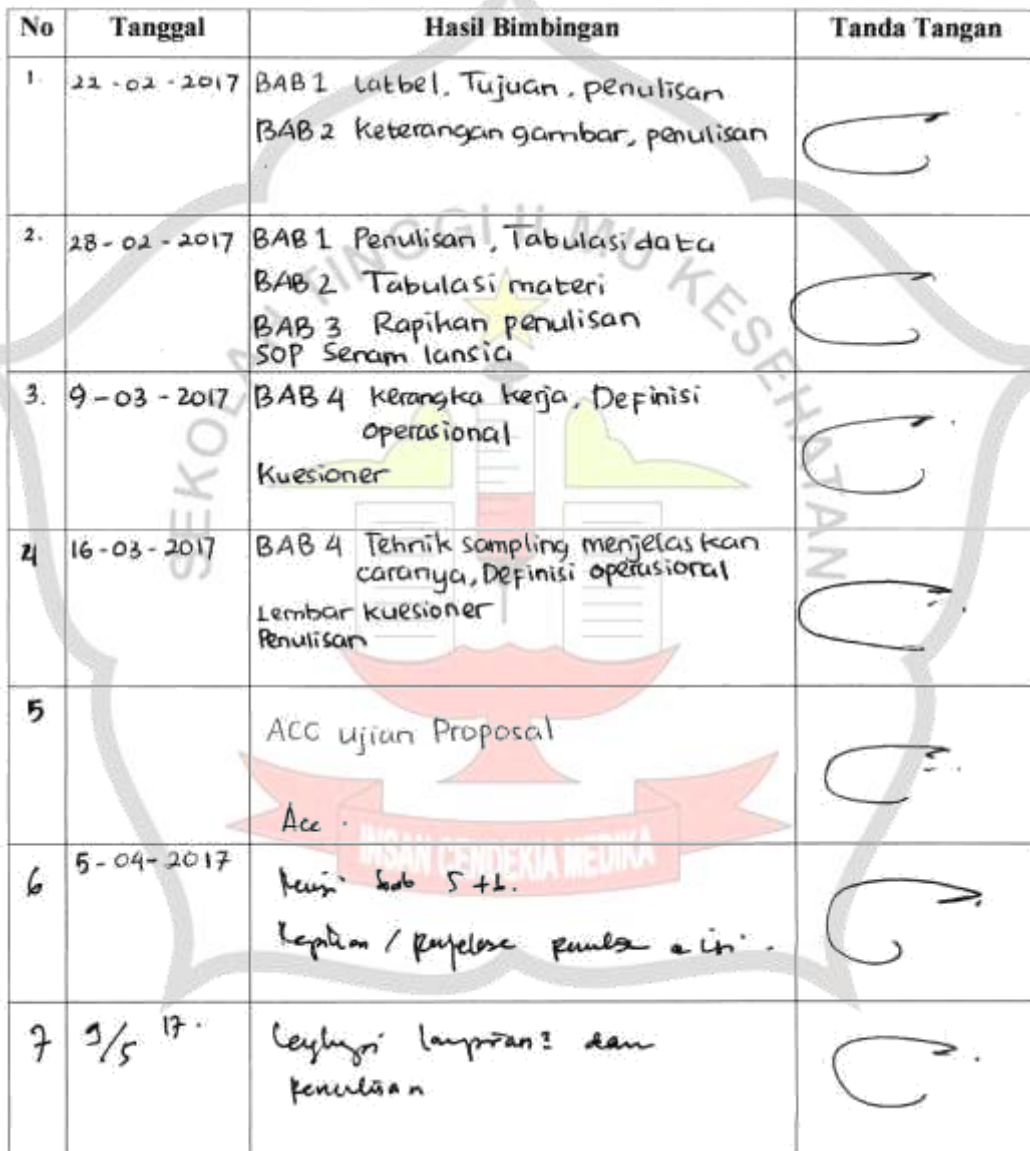 No Tanggal Hasil Bimbingan Tanda Tangan
1. 22-02-2017 BAB 1 Latbel, Tujuan, penulisan
BAB 2 keterangan gambar, penulisan
2. 28-02-2017 BAB 1 Penulisan, Tabulasi data
BAB 2 Tabulasi materi
BAB 3 Rapihan penulisan
SOP Senam lansia
3. 9-03-2017 BAB 4 kerangka kerja, Definisi
operasional
Kuesioner
4 16-03-2017 BAB 4 Tehnik sampling menjelaskan
caranya, Definisi operasional
Lembar kuesioner
Penulisan
5
ACC ujian Proposal
Acc.
6 5-04-2017
bab 5+
7 9/5 17. dan
penulisan
SEKOLAH TINGGI ILMU KESEHATAN
INSAN CENDEKIA MEDIKA